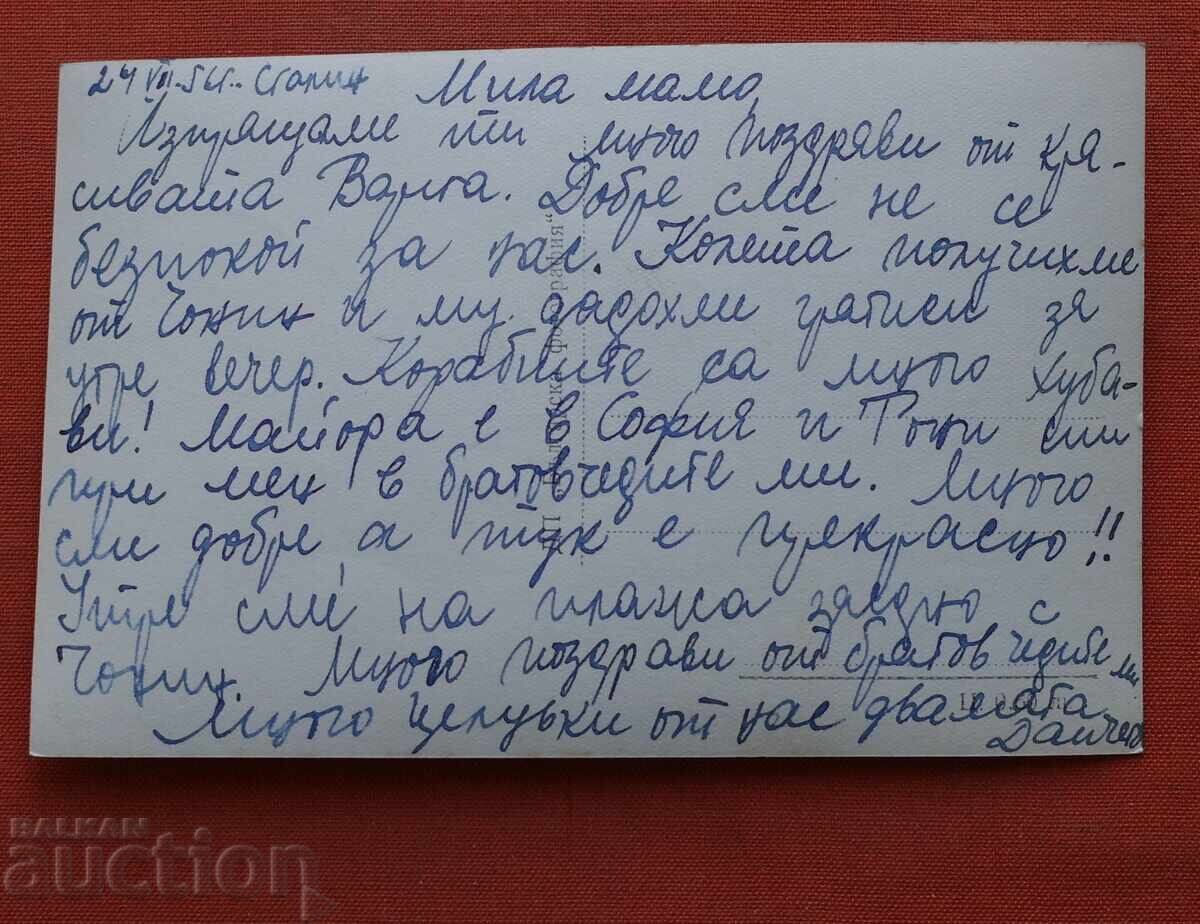 24 VII. 54. Сталин Мила мамо,
Изпращаме ти много поздрави от кра-
сивата Варна. Добре сме не се
безпокой за нас. Колета получихме
от Чонин и му дадохми гратиси за
утре вечер. Корабчиите са много хуба-
ви! Майора е в София и Тони спи
при мен в братовчедите ми. Много
сми добре а тук е прекрасно!!
Утре сме на плажа заедно с
Чонин. Много поздрави от братовчедите ми
Много целувки от нас двамата
Данчето
ДП фотография“
BALKAN
auction